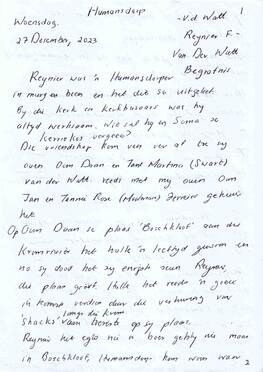 Humansdorp
1
Woensdag.
27 Desember, 2023
-v.d Watt
Reynier F-
Van Der Watt
Begrafnis
Reynier was 'n Humansdorper
in murg en been en het dit so uitgeleef.
By die kerk en kerkbasaars was hy
altyd werksaam. Wie sal hy en Soma se
kerriekos vergeet?
Die vriendskap kom ver
ouers Oom Daan en Tant Martina (Swart)
van der Watt reeds met my ouers Oom
Jan en Tannie Rose
het.
Op Oom Daan se plaas 'Boschkloof' aan die
Kromrivier het hulle 'n leeftyd gewoon en
na sy dood het sy enigste seun Reynier,
die plaas geërf. Hulle het reeds 'n goeie
inkomste verdien deur die verhuring van
langs die Krom
'shacks' op sy plaas.
Reynier het egter nie 'n boer gebly nie maar
in Boschkloof, Humansdorp kom woon waar
2